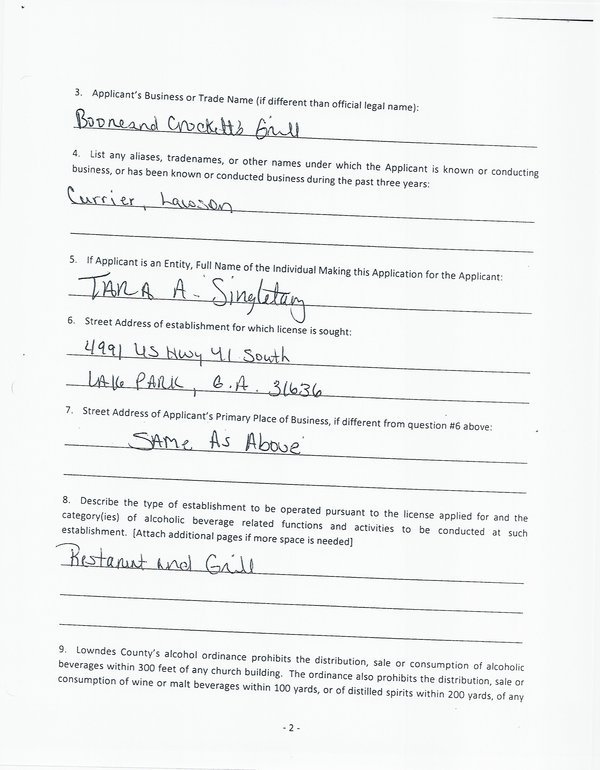 3. Applicant's Business or Trade Name (if different than official legal name):
Booneand Crockett's Grill
4. List any aliases, tradenames, or other names under which the Applicant is known or conducting
business, or has been known or conducted business during the past three years:
Currier, Lawson
5. If Applicant is an Entity, Full Name of the Individual Making this Application for the Applicant:
TARA A. Singletary
6. Street Address of establishment for which license is sought:
4991 US Hwy 41 South
LAKE PARK, G.A. 31636
7. Street Address of Applicant's Primary Place of Business, if different from question #6 above:
SAMe As Above
8. Describe the type of establishment to be operated pursuant to the license applied for and the
category(ies) of alcoholic beverage related functions and activities to be conducted at such
establishment. [Attach additional pages if more space is needed]
Restarunt and Grill
9. Lowndes County's alcohol ordinance prohibits the distribution, sale or consumption of alcoholic
beverages within 300 feet of any church building. The ordinance also prohibits the distribution, sale or
consumption of wine or malt beverages within 100 yards, or of distilled spirits within 200 yards, of any
- 2 -